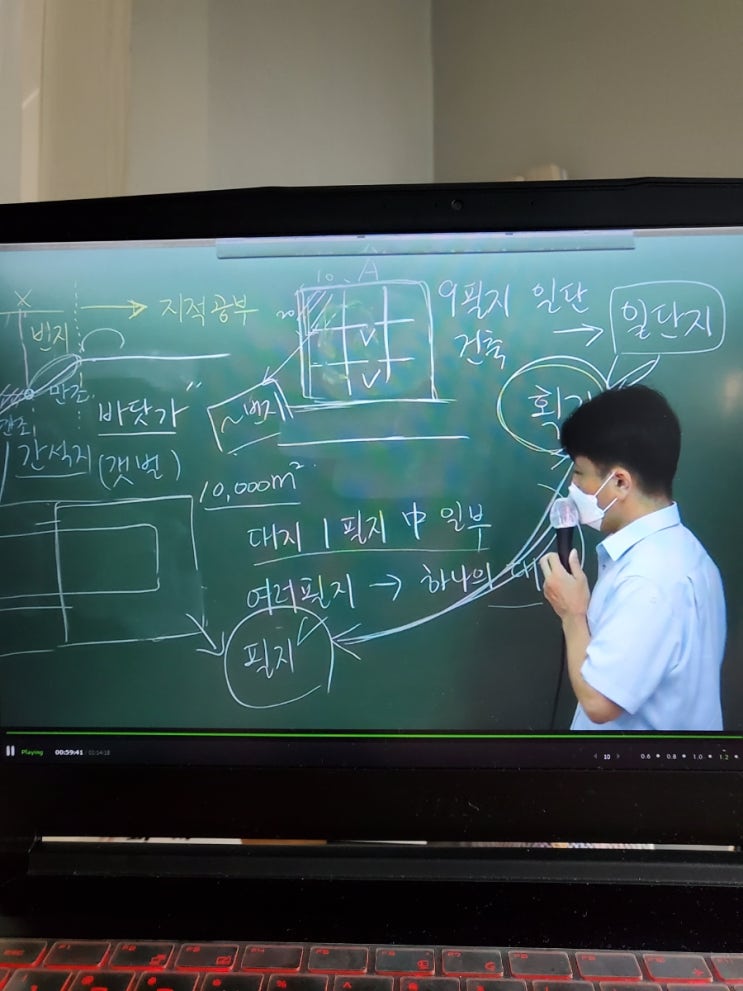 A
10
20
9필지 일단
건축 → 일단지
X
→ 지적공부
빈지
만조
바닷가"
~번지
간석지 (갯벌)
10,000m²
대지 1필지 中 일부
여러필지 → 하나의 대
필지
Playing 00:59:41 / 01:14:18
10 0.6 0.8 1.0 1.2